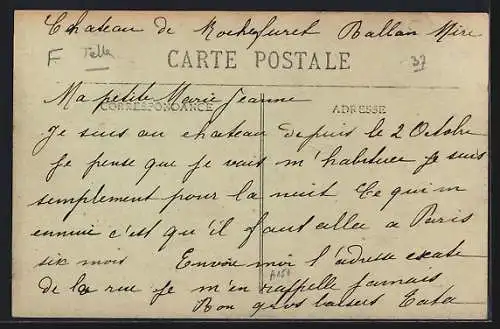 Chateau de Rochefuret Ballan Mire
F Telle
CARTE POSTALE
37
Ma petite Marie Jeanne
CORRESPONDANCE
ADRESSE
Je suis au chateau depuis le 2 Octobre
Je pense que je vais m'habituer Je suis
semplement pour la nuit Ce qui m
ennuie c'est qu'il faut aller a Paris
six mois Envoie moi l'adresse exate
de la rue Je m'en rappelle jamais
Bon gros baisers Tata